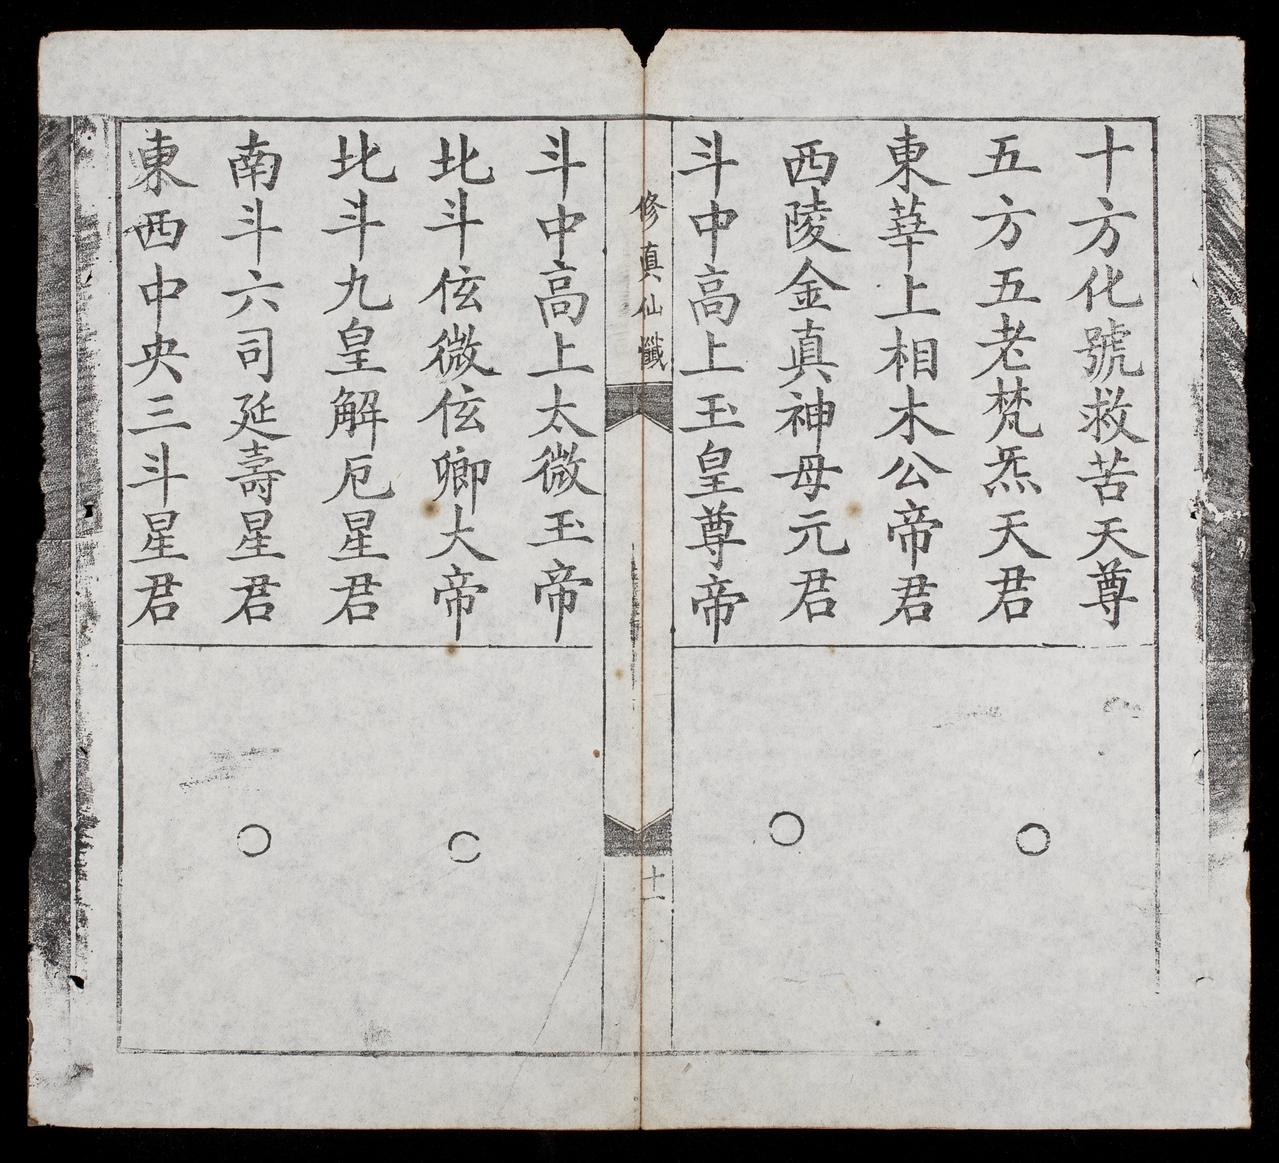 十方化號救苦天尊
五方五老梵炁天君
東華上相木公帝君
西陵金真神母元君
斗中高上玉皇尊帝
修真仙懺
十一
斗中高上太微玉帝
北斗伭微伭卿大帝
北斗九皇解厄星君
南斗六司延壽星君
東西中央三斗星君